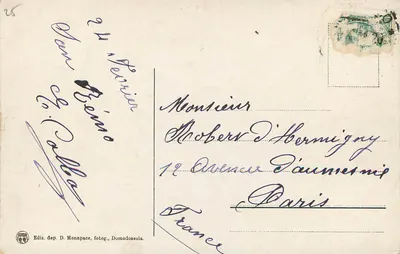 25
24 Fevrier
San Rémo
E. Collo
Monsieur
Robert d'Hermigny
12 Avenue d'aumesnie
Paris
France
Edit. dep. D. Monapace, fotog., Domodossola.